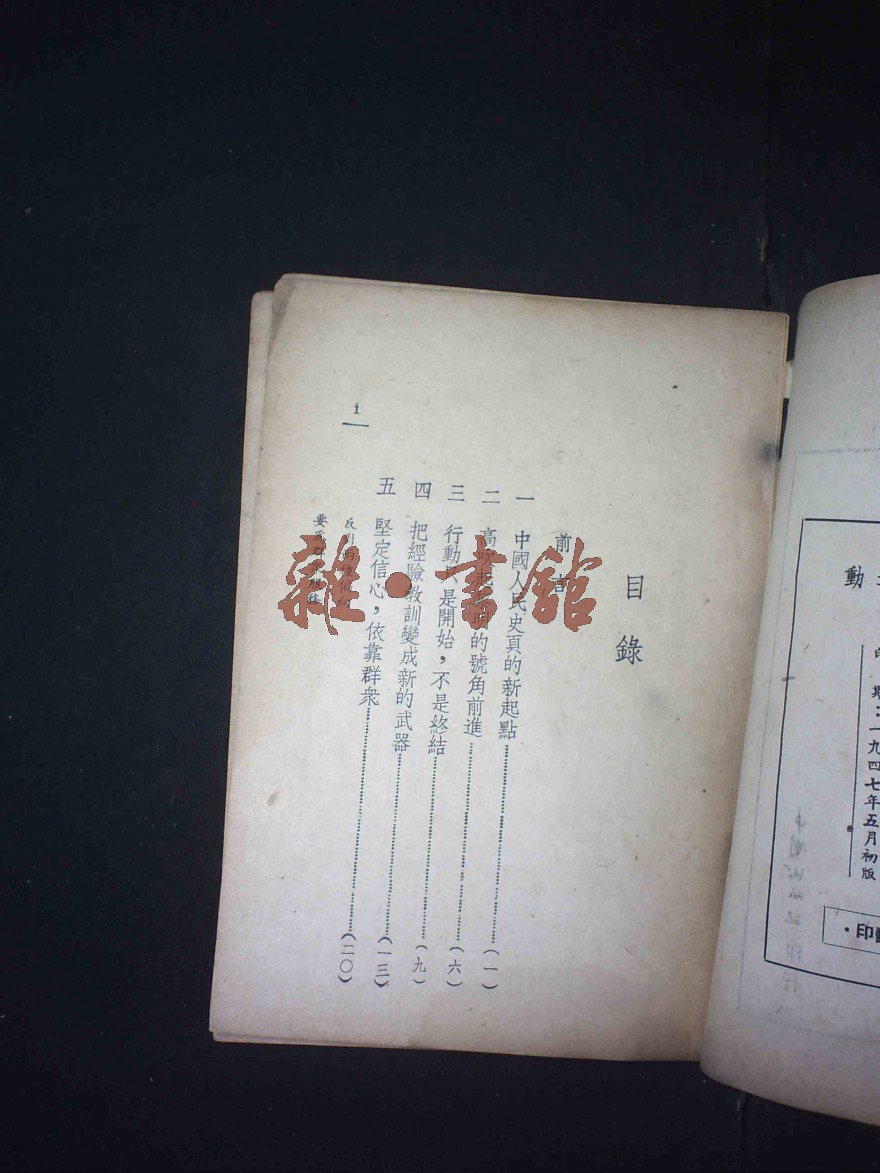 動
一九四七年五月初版
印
目錄
前
一 中國人民史頁的新起點(一)
二 高 起 的號角前進(六)
三 行動只是開始，不是終結(九)
四 把經驗教訓變成新的武器(一三)
五 堅定信心，依靠群衆(二〇)
1
雜·書館